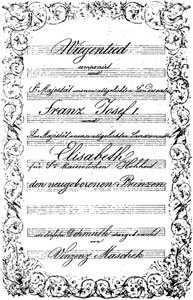 Wiegenlied
componirt
und
Sr Majestät meinem allergnädigsten Landesvater
Franz Josef I.
und
Ihrer Majestät meiner allergnädigsten Landesmutter
Elisabeth
für
den neugeborenen Prinzen
in tiefster Ehrfurcht
von
Vinzenz Maschek